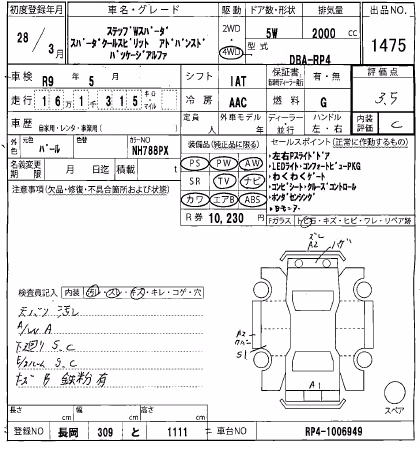 初度登録年月 車名・グレード 駆動 ドア数・形状 排気量 出品NO.
28/3月 ステップWスパーダ 2WD 4WD 5W 2000cc 1475
スパーダクールスピリット アドバンスド
パッケージアルファ 型式 DBA-RP4
車検 R9年5月 シフト IAT 保証書 有・無 評価点
走行 161315 キロ マイル 冷房 AAC 燃料 G 3.5
車歴 自家用・レンタ・事業用( ) 定員 人 外車モデル 年 ディーラー 並行 ハンドル 左・右 内装評価 C
外色 元色 パール 色替 カラーNO NH788PX 装備品(純正品に限る) セールスポイント(正常に作動するもの)
名義変更期限 月 日迄 積載 t PS PW AW
・左右Pスライドドア
・LEDライト・コンフォートビューPKG
注意事項(欠品・修復・不具合箇所および状態) SR TV ナビ
・わくわくゲート
・コンビシート・クルーズコントロール
カワ エアB ABS
・ホンダセンシング
R券 10,230円 Fガラス トビ石・キズ・ヒビ・ワレ・リペア跡
検査員記入 内装 汚レ・スレ・キズ・キレ・コゲ・穴
天バリ 汚レ
A/W A
下廻り S.C
S.C
キズ 鉄粉有
A2
A2
S1
A1
スペア
長さ cm 幅 cm 高さ cm
登録NO 長岡 309 と 1111 車台NO RP4-1006949